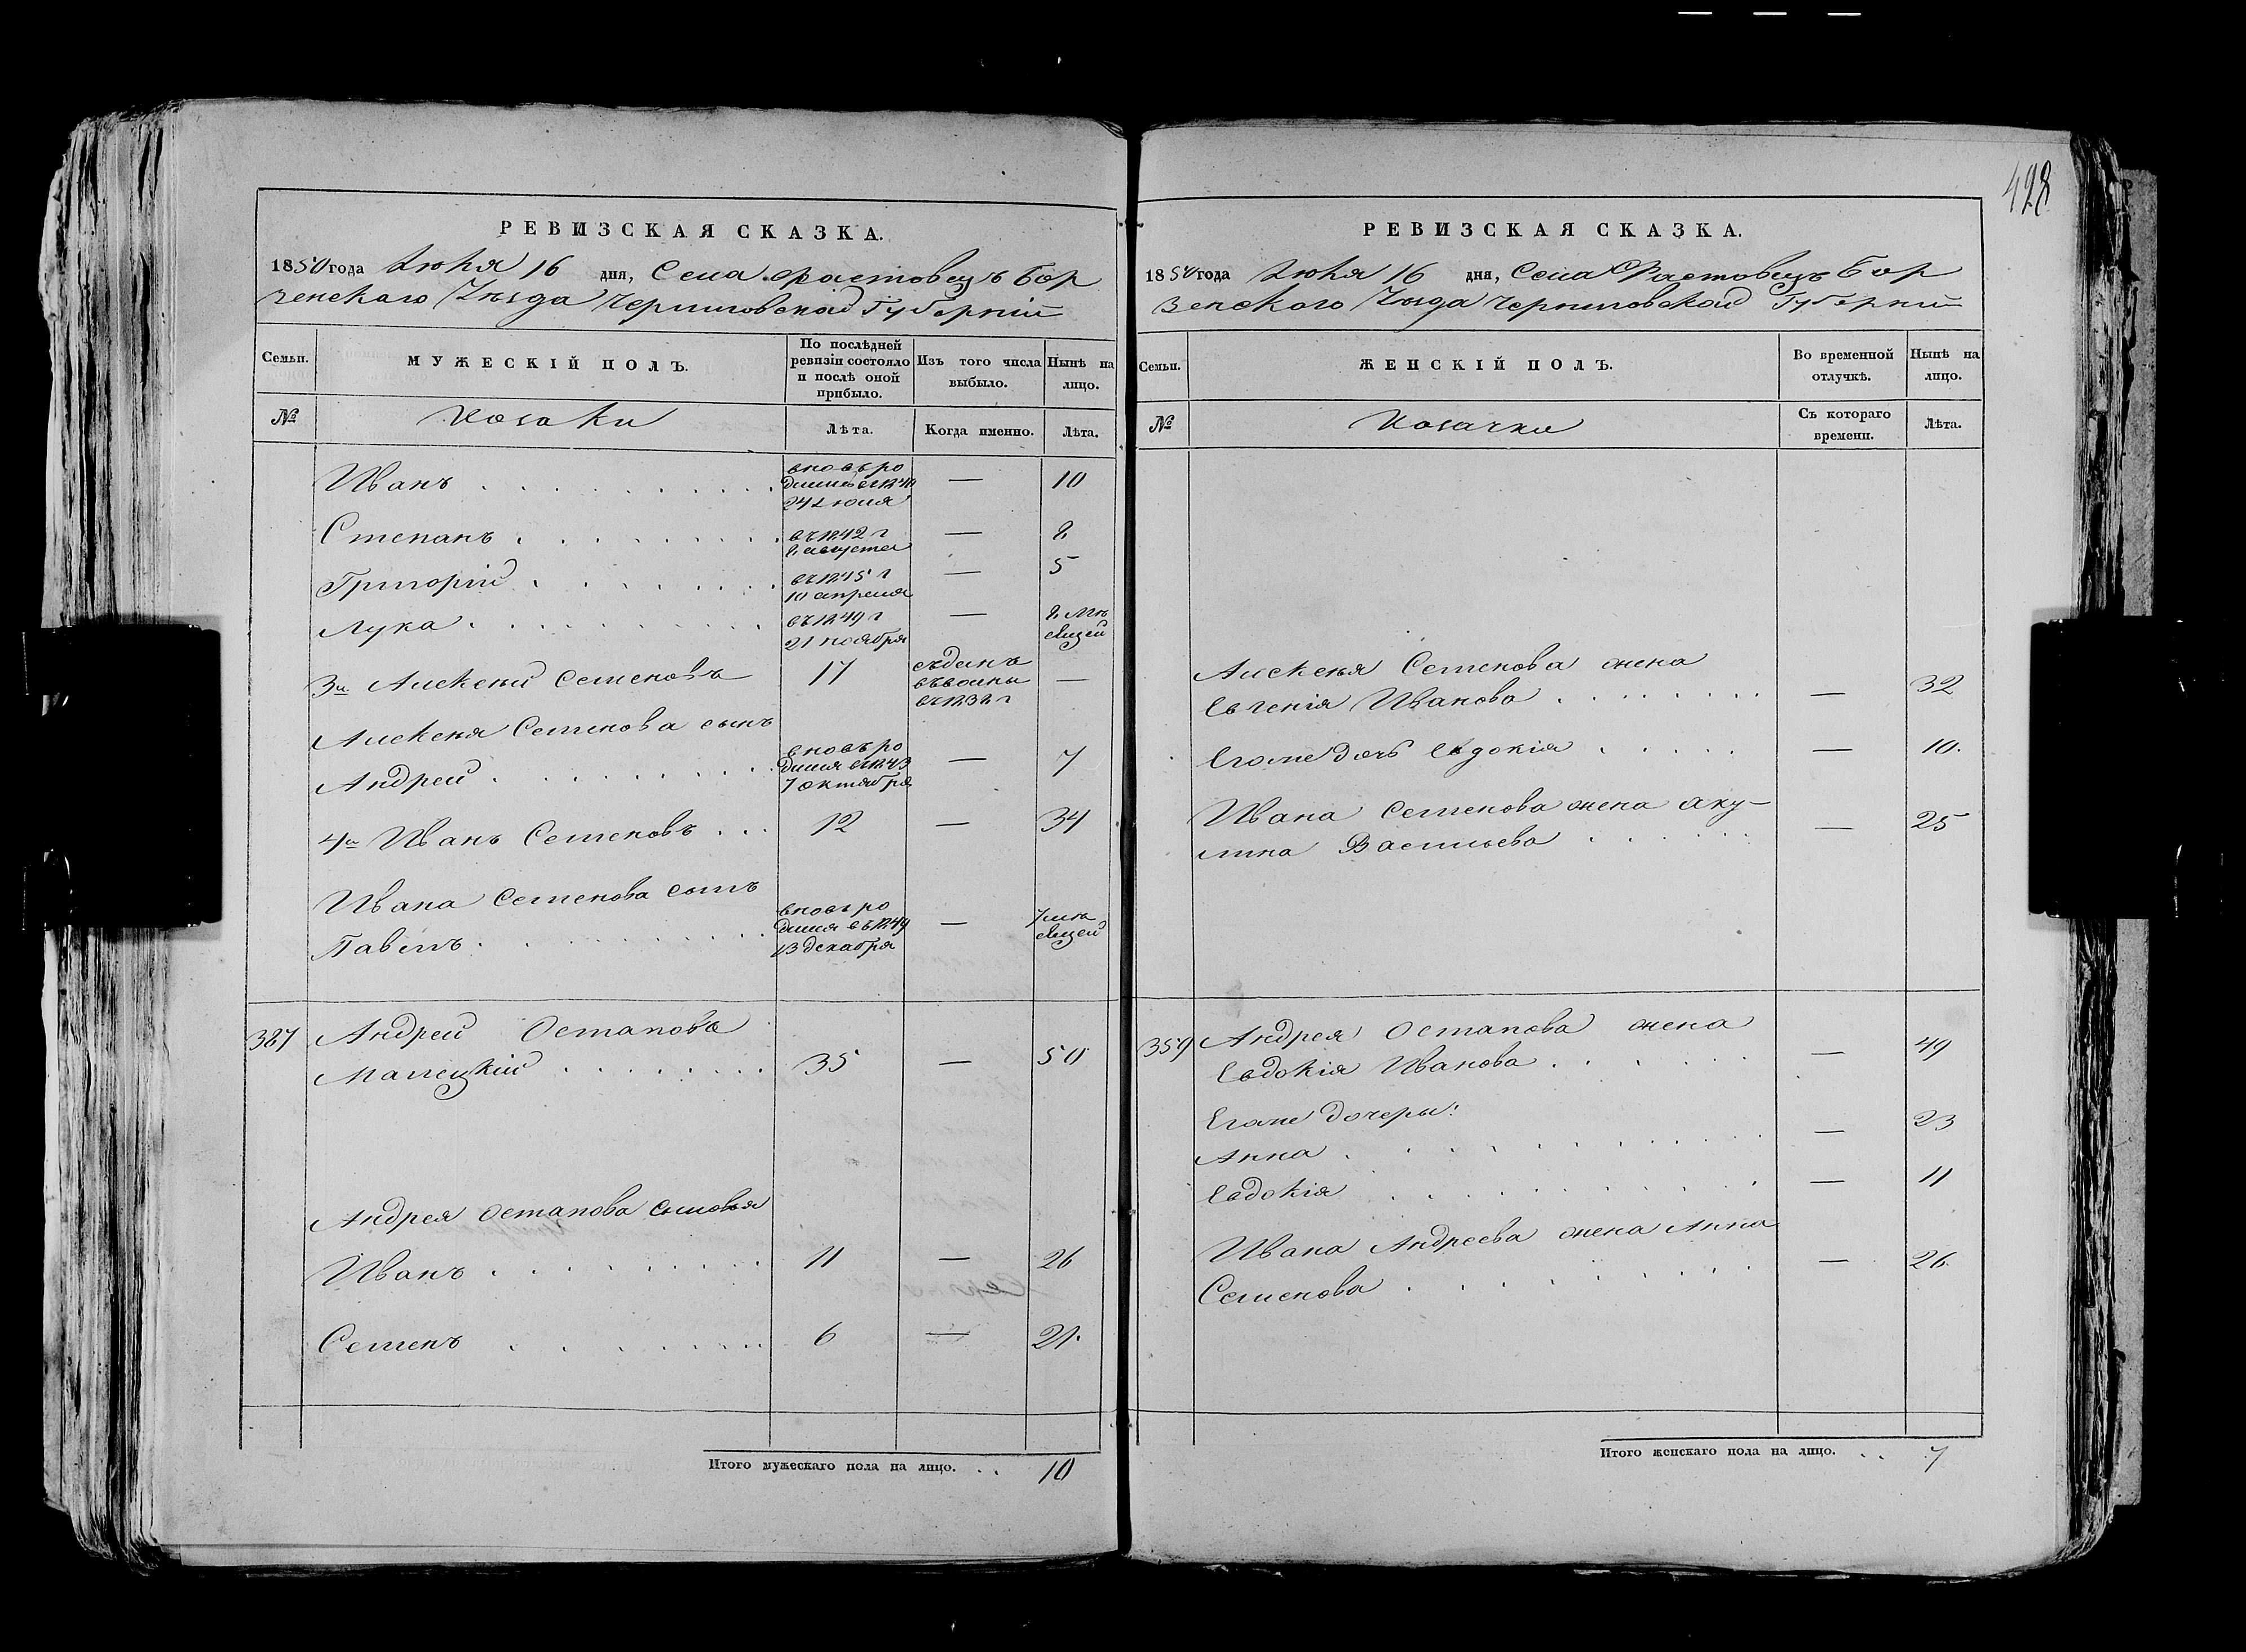 428
РЕВИЗСКАЯ СКАЗКА.
1850 года Июня 16 дня, Села Растовецъ Бор
зенского Уезда Черниговской Губерніи
Семьи.
МУЖЕСКІЙ ПОЛЪ.
По послѣдней ревизіи состояло и послѣ оной прибыло.
Изъ того числа выбыло.
Нынѣ на лицо.
№
Козаки
Лѣта.
Когда именно.
Лѣта.
Иванъ . . . вновь ро
дился въ 1840
24 Июля — 10
Степанъ . . . въ 1842 г
8 августа — 8
Григорій . . . въ 1845 г
10 апреля — 5
Лука . . . въ 1849 г
21 ноября — 8 мѣ
сяцей
3й Алексей Семеновъ 17 отданъ
въ 1832 г —
Алексея Семенова сынъ
Андрей . . . вновь ро
дился въ 1843
7 октября — 7
4й Иванъ Семеновъ . . . 12 — 34
Ивана Семенова сынъ
Павелъ . . . вновь ро
дился въ 1849
13 декабря — 7 мѣ
сяцей
387 Андрей Остаповъ
Малецкій . . . 35 — 50
Андрея Остапова сыновья
Иванъ . . . 11 — 26
Семенъ . . . 6 — 21.
Итого мужескаго пола на лицо. . . 10
РЕВИЗСКАЯ СКАЗКА.
1850 года Июня 16 дня, Села Растовецъ Бор
зенского Уезда Черниговской Губерніи
Семьи.
ЖЕНСКІЙ ПОЛЪ.
Во временной отлучкѣ.
Нынѣ на лицо.
№
Козачки
Съ котораго времени.
Лѣта.
Алексея Семенова жена
Евгенія Иванова . . . — 32
Егоже дочь Евдокія . . . — 10.
Ивана Семенова жена Аку-
лина Васильева . . . — 25
359 Андрея Остапова жена
Евдокія Иванова . . . — 49
Егоже дочеры:
Анна . . . — 23
Евдокія . . . — 11
Ивана Андреева жена Анна
Семенова . . . — 26
Итого женскаго пола на лицо. . . 7